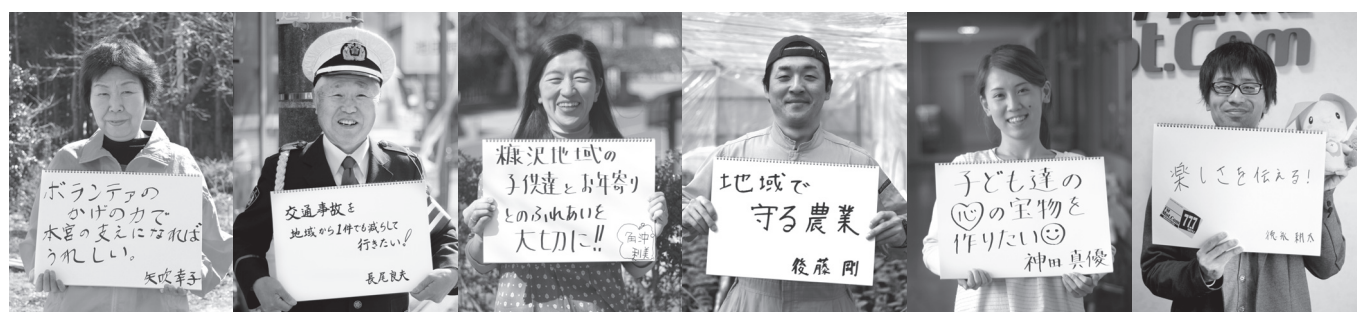 ボランテァの
かげの力で
本宮の支えになれば
うれしい。
矢吹幸子
交通事故を
地域から1件でも減らして
行きたい!
長尾良夫
糠沢地域の
子供達とお年寄り
とのふれあいを
大切に!!
地域で
守る農業
後藤 剛
子ども達の
心の宝物を
作りたい
神田真優
ot.Com
楽しさを伝える!
777